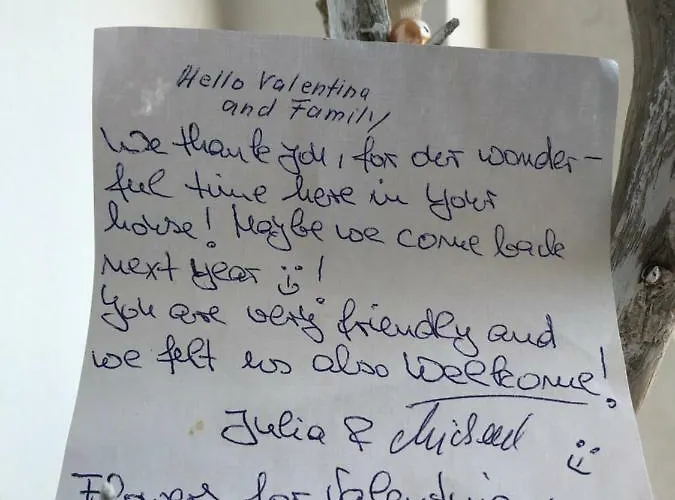 Hello Valentina
and Family
We thank you, for der wonder-
ful time here in your
house! Maybe we come back
next year :)!
You are very friendly and
we felt us also Wellkome!
Julia & Michael :)
Flowers for Valentina